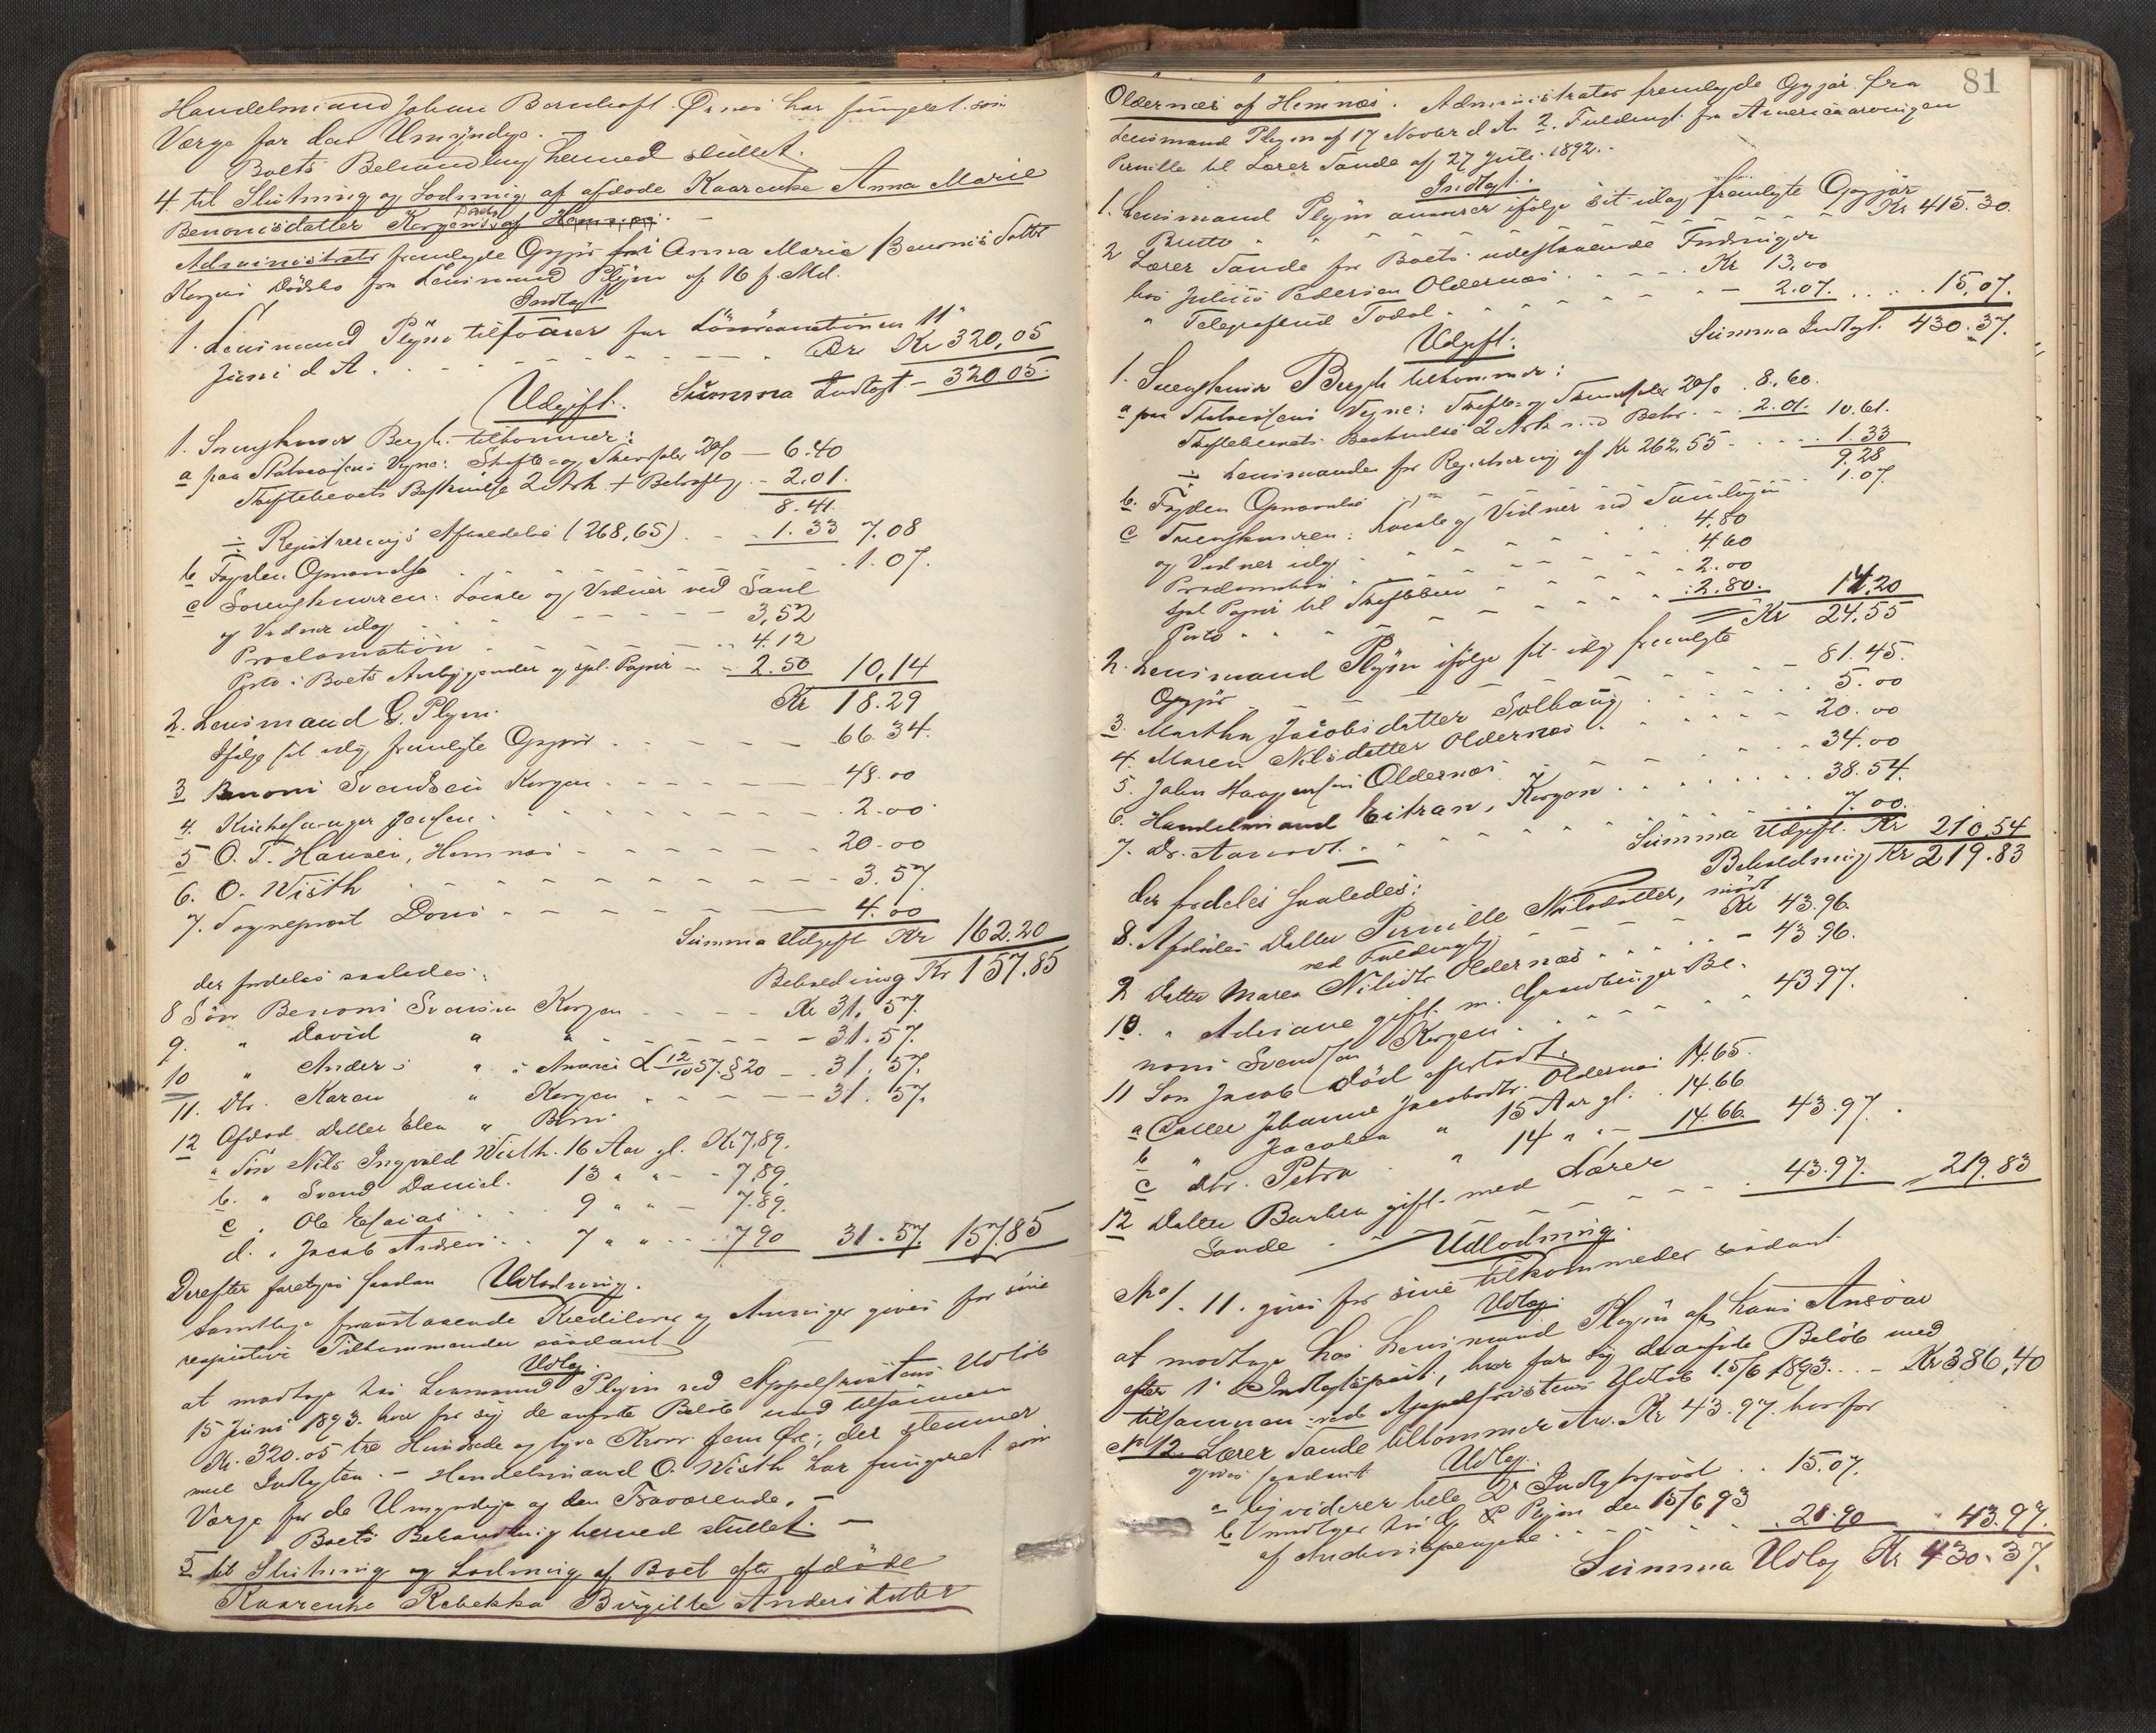 Handelsmand Johan Bernhoft. Ørnes har fungeret som
Værge for den Umyndige.
Boets Behandling hermed sluttet.
4. til Slutning og Lodning af afdøde Kaarenke Anna Marie
Benonisdatter Korgens Dødsbo af Hemnes. -
Administrator fremlagde Opgjør fra Anna Marie Benonis Datter
Korgens Dødsbo fra Lensmand Plejm af 16 f. Md.
Indtægt
1. Lensmand Plejm tilsvarer for Lønsauctionen 11te
Juni d A. Kr 320,05
Summa Indtægt - 320 05.
Udgift.
1. Sorenskriver Bergh tilkommer:
a paa Statscassens Vegne: Skifte- og 2% - 6.40
Skiftebrevets Beskrivelse 2 Ark + Bekræft. - 2.01.
8.41
÷ Registrerings Afhændelse (268,65) . 1.33 7.08
b Fogden Opnævnelse 1.07.
c Sorenskriveren: Locale og Vidner ved Saml
og Vidner idag 3,52
Proclamation 4.12
Porto i Boets Anliggender og spl. Papir - 2.50 10,14
Kr 18.29
2. Lensmand G. Plejm.
Ifølge sit idag fremlagte Opgjør 66.34.
3 Benoni Svendsen Korgen 48.00
4. Kirkesanger Jensen 2.00
5 O. T. Hansen, Hemnes 20.00
6. O. Wisth 3.57.
7. Sogneprost Dons 4.00
Summa Udgift Kr 162.20
Beholdning Kr 157.85
der fordeles saaledes:
8 Søn Benoni Svendsen Korgen Kr 31.57.
9. " David " " 31.57.
10 " Anders " i Amerika L 12/10 57. § 20 - 31.57.
11. Dtr. Karen " Korgen 31.57.
12 Afdød Datter Elen " Børn
a Søn Nils Ingvald Wisth. 16 Aar gl. Kr 7.89.
b. " Svend Daniel. 13 " " - 7.89.
c " Ole Esaias 9 " " - 7.89.
d. " Jacob Andreas 7 " " 7.90 31.57 157.85
Derefter foretoges saadan Udlodning.
Samtlige foranstaaende Creditorer og Arvinger gives for sine
respective Tilkommender saadant
Udlæg.
at modtage hos Lensmand Plejm ved Appelfristens Udløb
15 Juni 1893. hver for sig de anførte Beløb med tilsammen
Kr. 320.05 tre Hundrede og tyve Kroner fem Øre, der stemmer
med Indtægten. - Handelsmand O. Wisth har fungeret som
Værge for de Umyndige og den Fraværende. -
Boets Behandling hermed sluttet. -
5 til Slutning og Lodning af Boet efter afdøde
Kaarenke Rebekka Birgitte Andersdatter
81
Oldernæs af Hemnæs. Administrator fremlagde Opgjør fra
Lensmand Plejm af 17 Novbr d A. 2. Fuldmagt fra Americaarvingen
Pernille til Lærer Sande af 27 Juli 1892.
Indtægt.
1. Lensmand Plejm ansvarer ifølge sit idag fremlagte Opgjør
Brutto Kr 415.30.
2 Lærer Sande for Boets udestaaende Fordringer
hos Julius Pedersen Oldernæs Kr 13.00
" Telegrafbud Todal 2.07. 15.07.
Summa Indtægt. 430.37.
Udgift.
1. Sorenskriver Bergh tilkommer:
a paa Statscassens Vegne: Skifte- og 2% . 8.60.
Skiftebrevets Beskrivelse 2 Ark med Bekr. 2.01. 10.61.
÷ Lensmanden for Registrering af Kr 262.55 1.33
9.28
b. Fogden Opnævnelse 1.07.
c Sorenskriveren: Locale og Vidner ved Samlingen
og Vidner idag 4.80
Proclamation 4.60
spl. Papir til Skiftebrev 2.00
Porto 2.80. 14.20
Kr 24.55
2. Lensmand Plejm ifølge sit idag fremlagte
Opgjør 81.45.
3. Martha Jacobsdatter Solhaug 5.00
4. Maren Nilsdatter Oldernæs 20.00
5. John Haagensen Oldernæs 34.00
6. Handelsmand Eitran, Korgen 38.54.
7. Dr. Aarvodt. 7.00.
Summa Udgift. Kr 210.54
Beholdning Kr 219.83
der fordeles saaledes:
8. Afdødes Datter Pernille Nilsdatter, mødt
ved Fuldmægtig Kr 43.96.
9 Datter Maren Nilsdtr Oldernæs 43.96.
10. " Adriane gift m. Gaardbruger Be-
noni Svendsen Korgen 43.97.
11 Søn Jacob død efterladt.
a Datter Johanne Jacobsdtr. Oldernæs 14.65.
b " Jacobea " 15 Aar gl. 14.66
c Dtr. Petra " 14 " " 14.66 43.97.
12 Datter Barbra gift med Lærer
Sande 43.97. 219.83
Udlodning.
No 1. 11. gives for sine tilkommender saadant
Udlæg.
at modtage hos Lensmand Plejm af hans Ansvar
efter 1 Indtægtspost, hver for sig de anførte Beløb med
tilsammen ved Appelfristens Udløb 15/6 1893. - Kr 386,40
No 12. Lærer Sande tilkommer Arv. Kr 43.97. hvorfor
gives saadant Udlæg.
a liqviderer hele 2 Indtægtspost 15.07.
b modtager hos G. Plejm den 15/6 93
af Auctionspengene 28.90 43.97.
Summa Udlæg Kr 430.37.